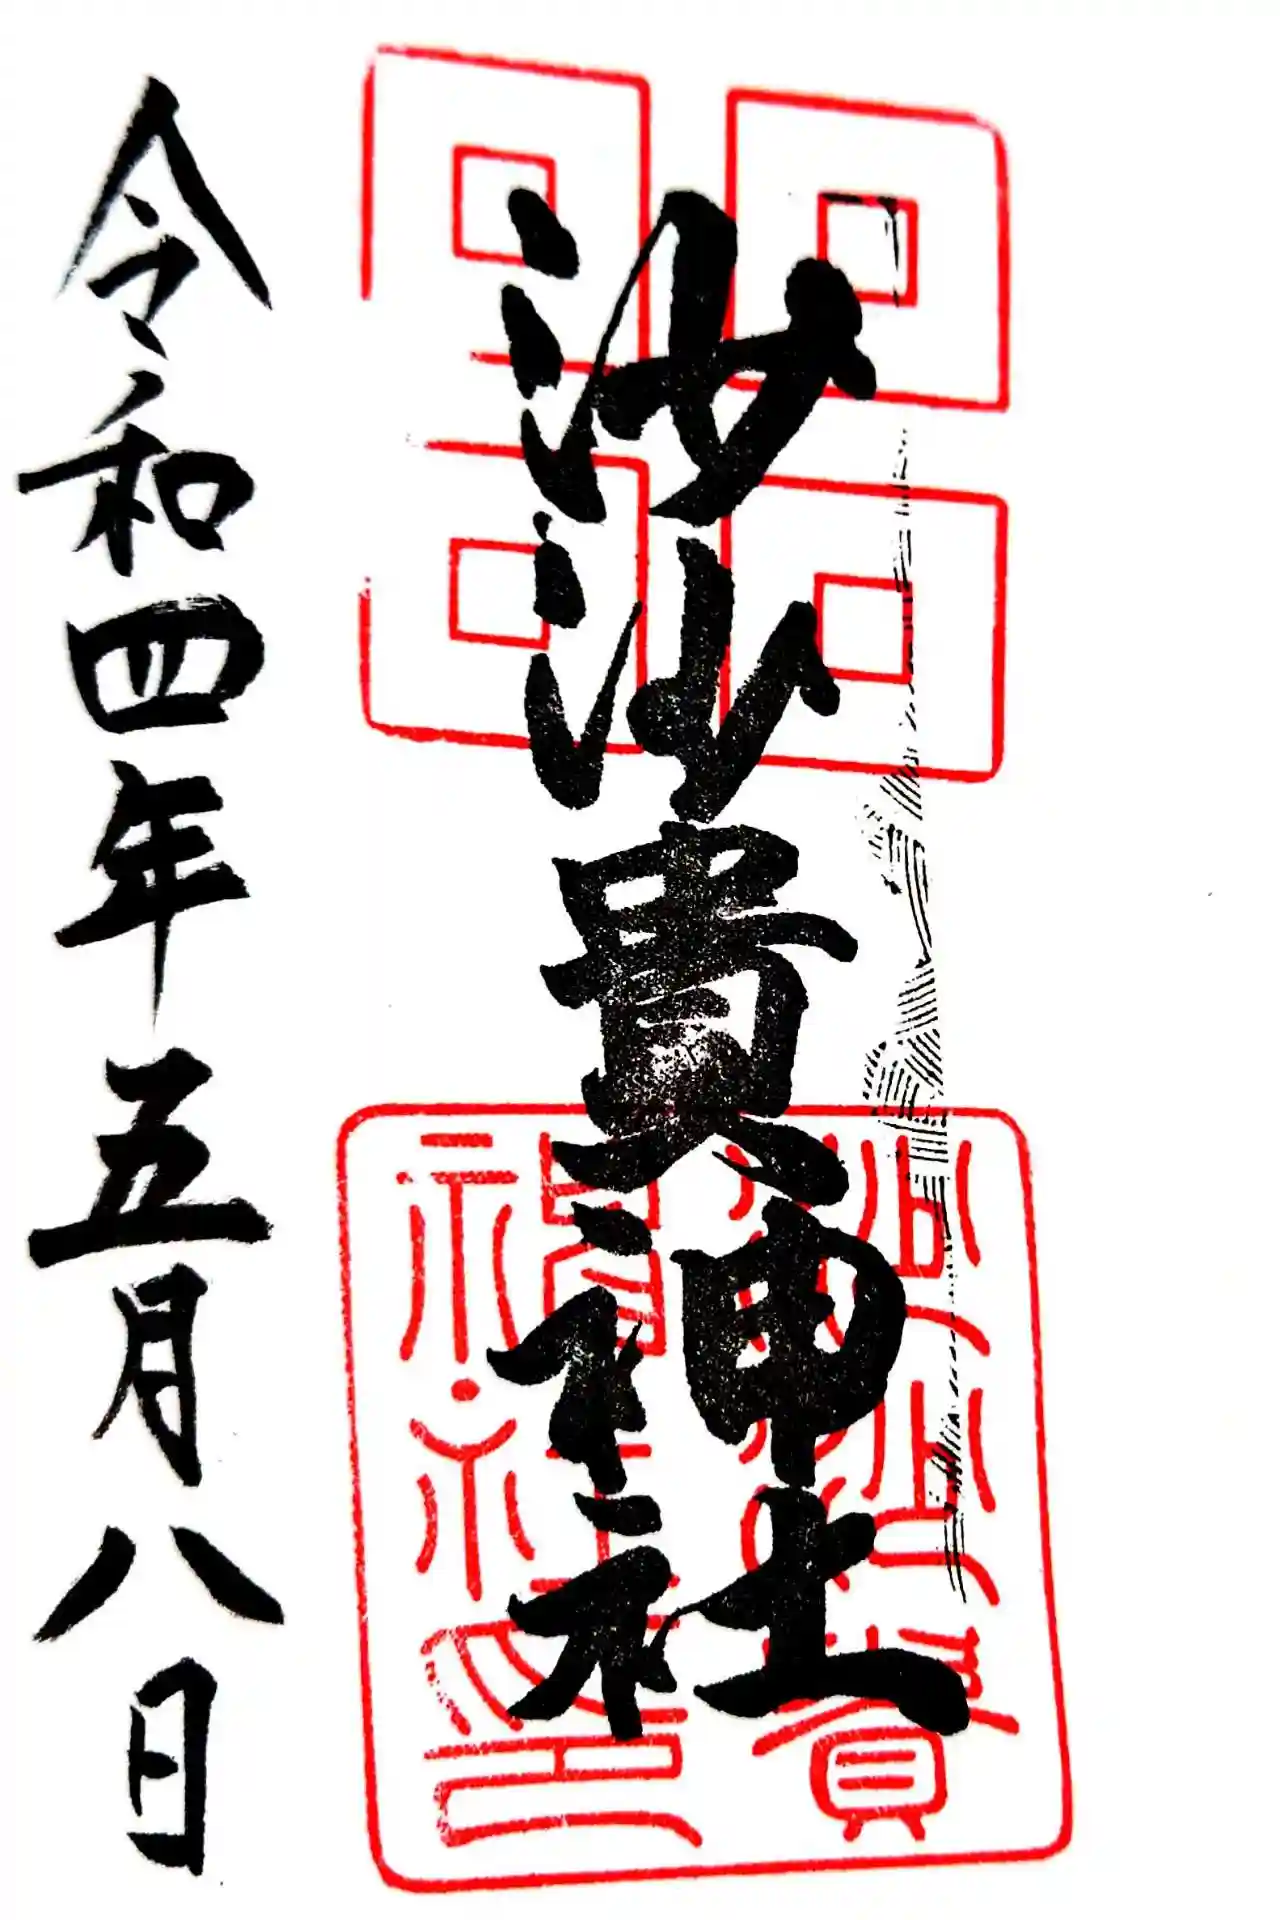 沙沙貴神社
令和四年五月八日
沙沙貴
神社印